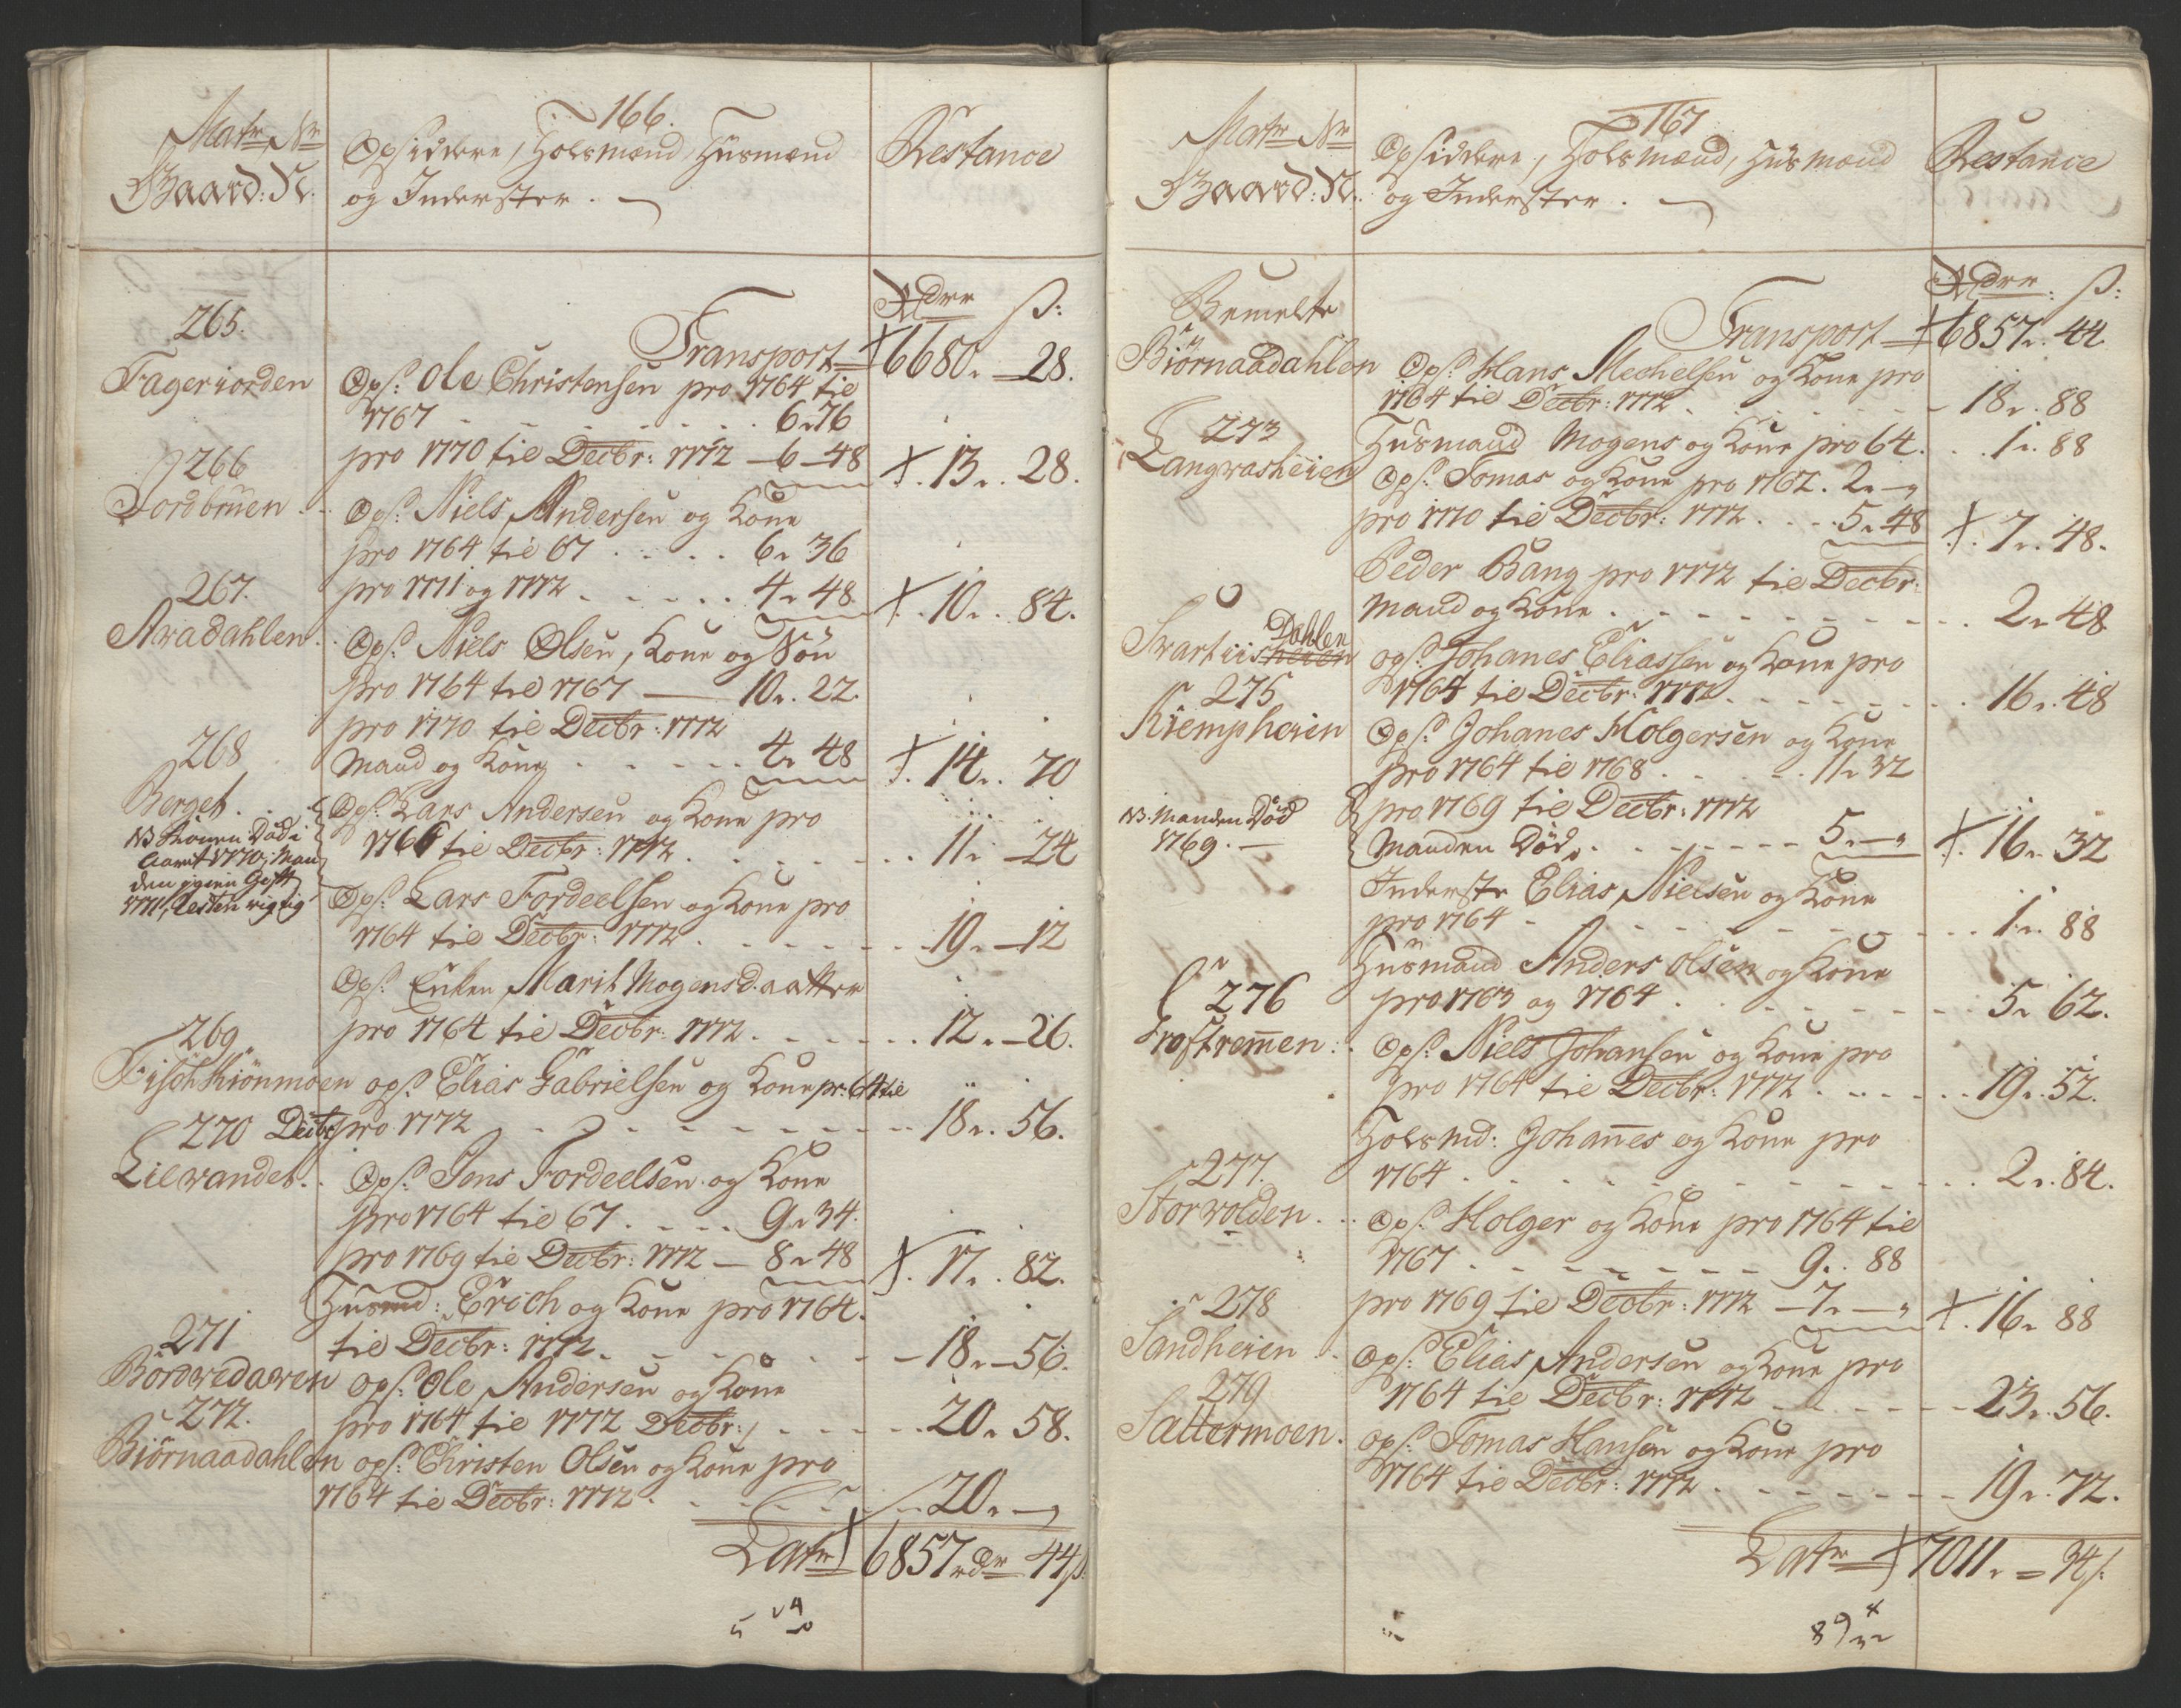 166.
Matr Nr
Gaard: N.
Opsiddere, Holsmænd Huusmænd
og Inderster.
Restance
Rdrr ß:
Transport 6680.. 28.
265.
Fageriorden
Ops: Ole Christensen pro 1764 til
1767 6.. 76
pro 1770 til Decbr: 1772 6 48 13.. 28.
266
Jordbruen
Ops: Niels Andersen og Kone
pro 1764 til 67 6.. 36
pro 1771 og 1772 4.. 48 10.. 84.
267.
Avadahlen
Ops: Niels Olsen, Kone og Søn
pro 1764 til 1767 10.. 22.
pro 1770 til Decbr: 1772
Mand og Kone 4.. 48 14.. 70
268
Berget
NB Konen Død i
Aaret 1770, Man
den igien Gift
1771, Resten rigtig
Ops: Lars Andersen og Kone pro
1766 til Decbr: 1772 11.. 24
Ops: Lars Fordeelsen og Kone pro
1764 til Decbr: 1772 19.. 12
Ops: Enken Marit Mogensdaatter
pro 1764 til Decbr: 1772 12.. 26.
269
Fischkiønmoen ops: Elias Gabrielsen og Kone pr: 64 til
Decbr pro 1772 18.. 56.
270
Lilvandet
Ops: Jens Fordeelsen og Kone
pro 1764 til 67 9.. 34.
pro 1769 til Decbr: 1772 8.. 48 17.. 82.
Husmd: Erich og Kone pro 1764.
til Decbr: 1772 18.. 56.
271
Bordvedaven ops: Ole Andersen og Kone
pro 1764 til 1772 Decbr: 20.. 58.
272.
Biørnaadahlen ops: Christen Olsen og Kone pro
1764 til Decbr: 1772 20..
Latr 6857 rdr 44 ß.
167
Matr Nr
Gaard: N.
Opsiddere, Holsmænd, Husmænd
og Inderster.
Restance
Rdrr: ß:
Transport 6857.. 44
Bemelte
Biørnaadahlen Ops: Hans Mechelsen og Kone pro
1764 til Decbr: 1772 18.. 88
273
Langvasheien
Husmand Mogens og Kone pro 64. 1.. 88
Ops: Tomas og Kone pro 1767. 2..
pro 1770 til Decbr: 1772 5.. 48 7.. 48.
Peder Bang pro 1772 til Decbr:
Mand og Kone 2.. 48
Dahlen
Svartiisheien
ops: Johanes Eliassen og Kone pro
1765 til Decbr: 1772 16.. 48
275
Kiempheien
Ops: Johanes Holgersen og Kone
pro 1764 til 1768 11.. 32
NB. Manden Død
1769.
pro 1769 til Decbr: 1772
Manden Død 5.. 16.. 32
Inderste Elias Nielsen og Kone
pro 1764 1.. 88
Husmand Anders Olsen og Kone
pro 1763 og 1764 5.. 62.
276
Ops: Niels Johansen og Kone pro
pro 1764 til Decbr: 1772 19.. 52.
Holsmd: Johannes og Kone pro
1764 2.. 84.
277.
Storvolden
Ops: Holger og Kone pro 1764 til
1767 9.. 88
pro 1769 til Decbr: 1772 7.. 16.. 88
278
Sandheien
Ops: Elias Andersen og Kone pro
1764 til Decbr: 1772 23.. 56.
279
Saltermoen
Ops: Tomas Hansen og Kone pro
1764 til Decbr: 1772 19.. 72.
Latr 7011.. 34 ß.